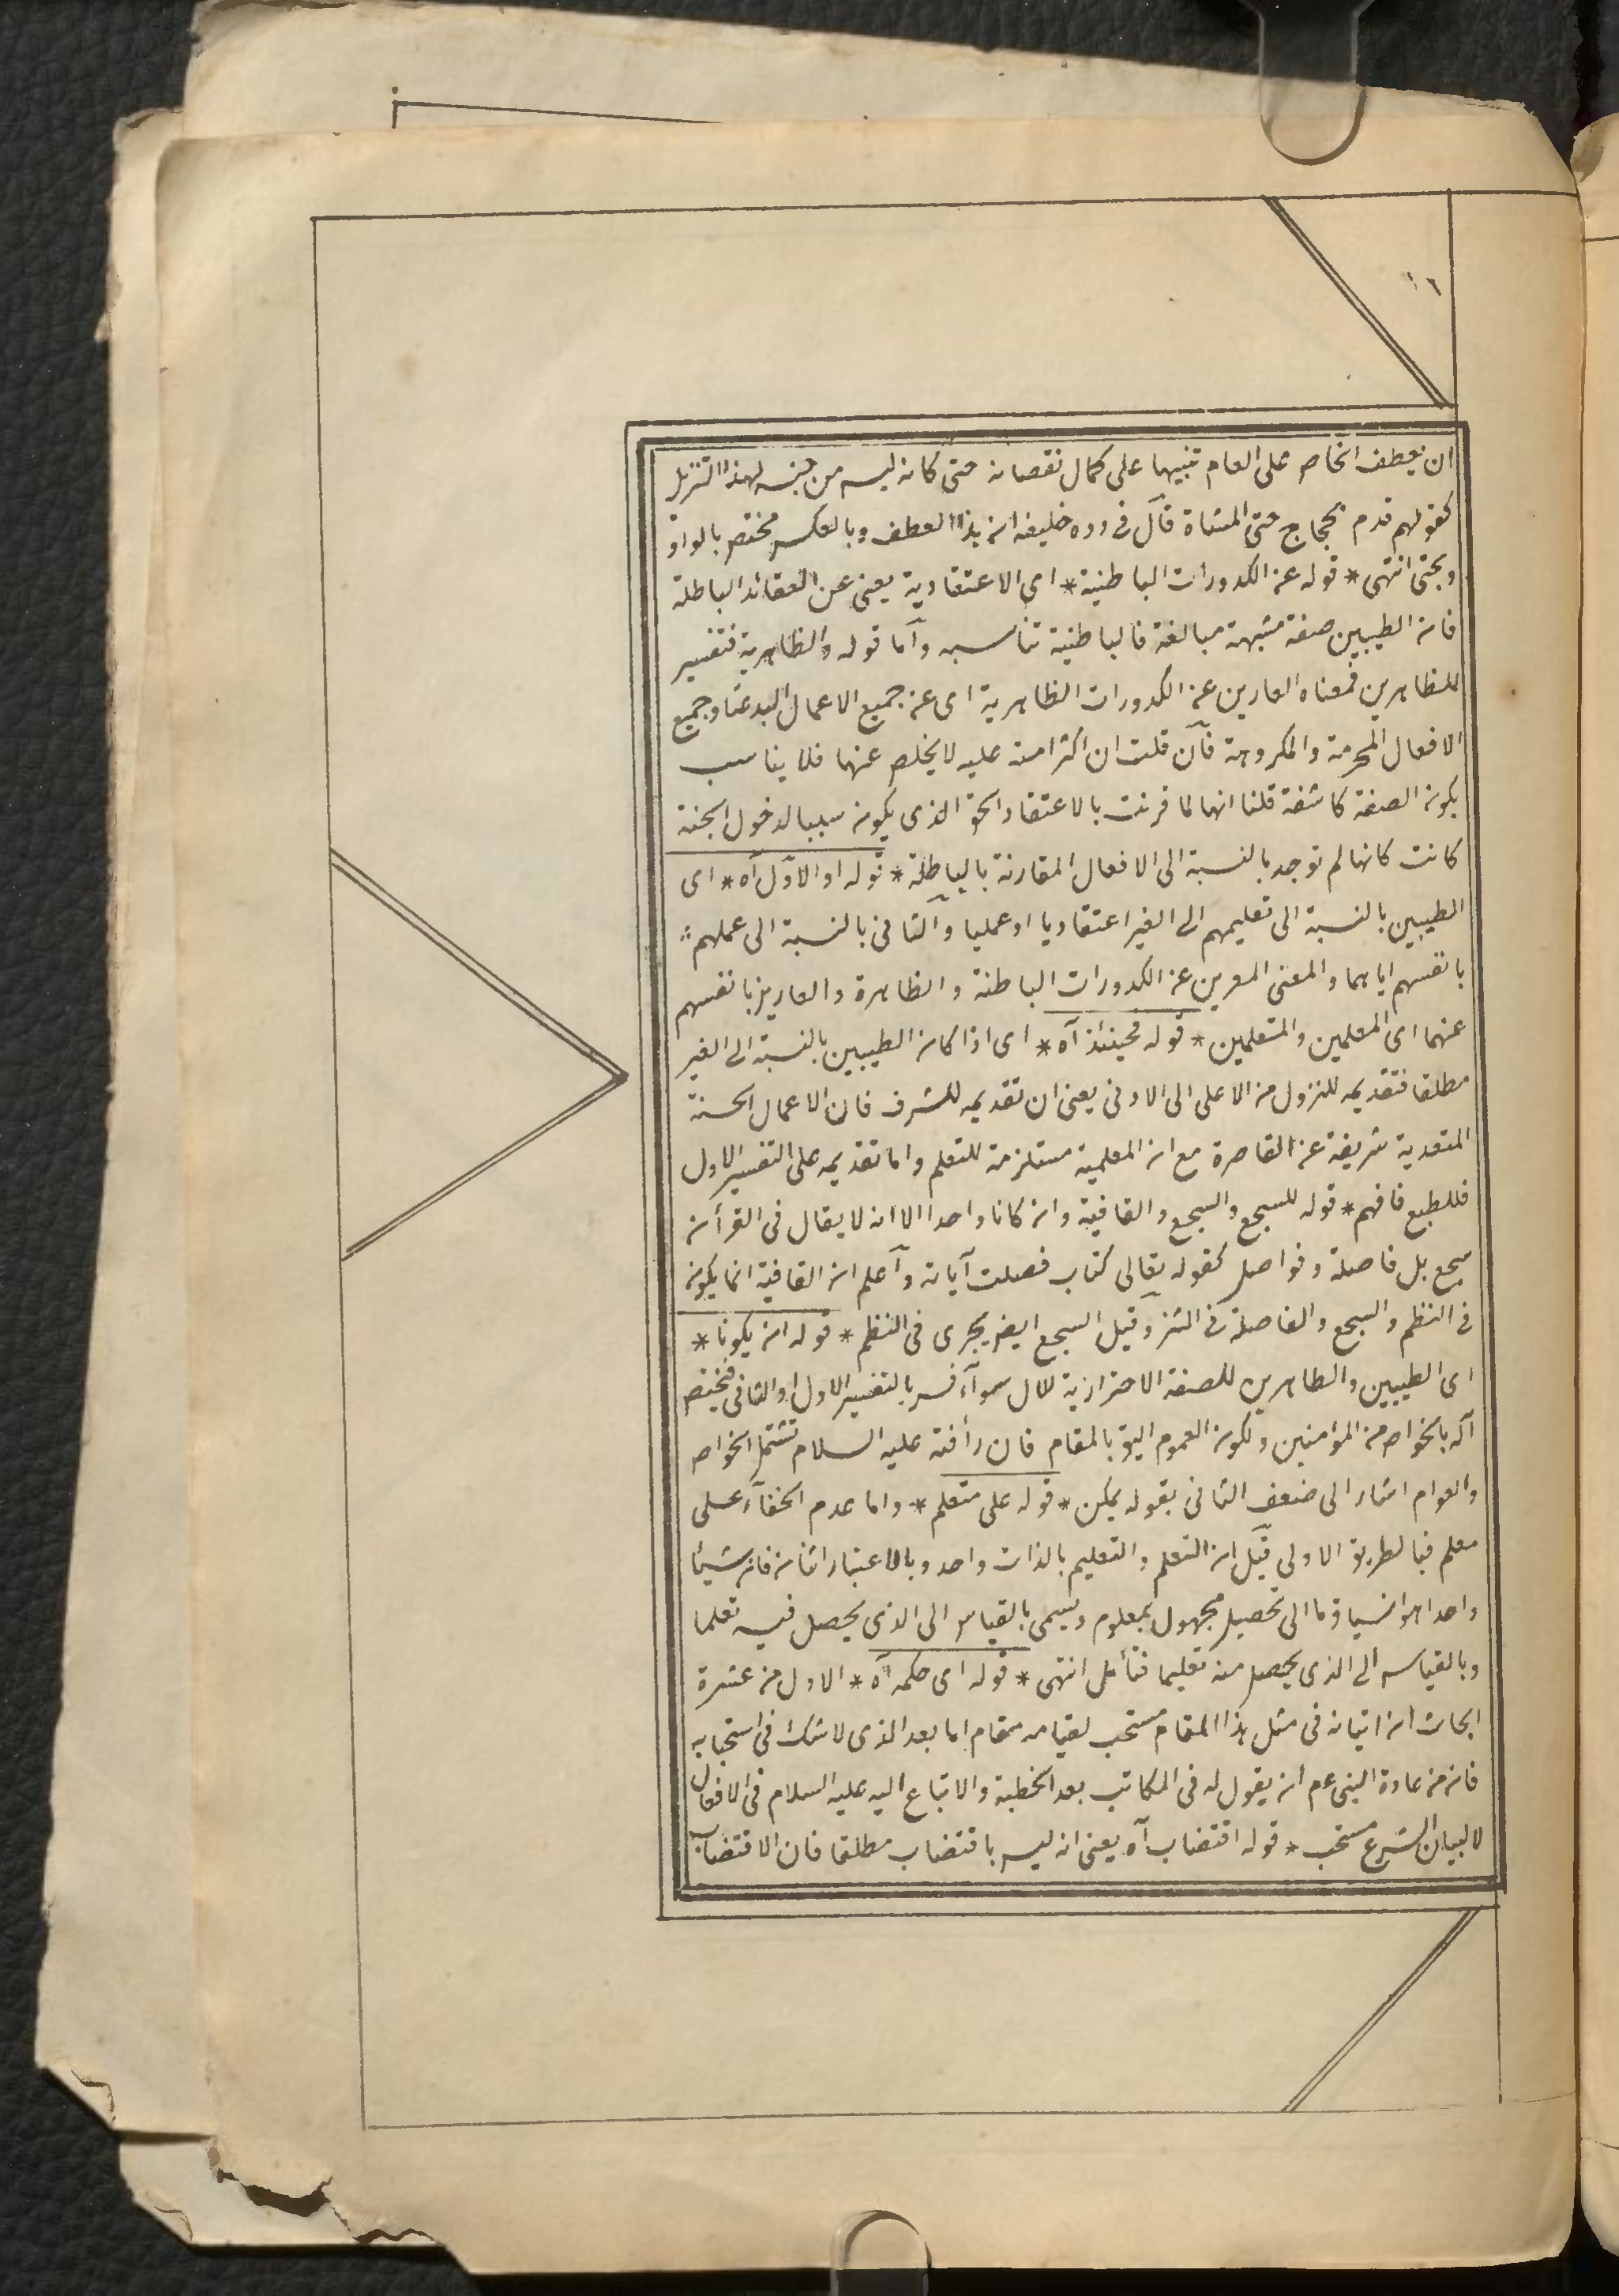 ١٦
ان يعطف الخاص على العام تنبيها على كمال نقصانه حتى كانه ليس من جنسه لهذا التنزيل
كقولهم قدم الحجاج حتى المشاة قال فى رده خليفه ان هذا العطف وبالعكس مختص بالواو
وبحتى انتهى * قوله عن الكدورات الباطنية * اى الاعتقادية يعنى عن العقائد الباطلة
فان الطيبين صفة مشبهة مبالغة فالباطنية تناسبه وآما قوله والظاهرية فتفسير
للطاهرين فمعناه العارين عن الكدورات الظاهرية اى عن جميع الاعمال البدعتا وجميع
الافعال المحرمة والمكروهة فآن قلت ان اكثر امته عليه لا يخلص عنها فلا يناسب
بكون الصفة كاشفة قلنا انها لما قرنت بالاعتقاد الحق الذى يكون سببا لدخول الجنة
كانت كانها لم توجد بالنسبة الى الافعال المقارنة بالباطلة * قوله او الاول آه * اى
الطيبين بالنسبة الى تعليمهم الى الغير اعتقاديا او عمليا وآلثانى بالنسبة الى عملهم
بانفسهم اياهما والمعنى المعرين عن الكدورات الباطنة والظاهرة والعارين بانفسهم
عنهما اى المعلمين والمتعلمين * قوله فحينئذ آه * اى اذا كان الطيبين بالنسبة الى الغير
مطلقا فتقديمه للنزول من الاعلى الى الادنى يعنى ان تقديمه للشرف فان الاعمال الحسنة
المتعدية شريفة عن القاصرة مع ان المعلمية مستلزمة للتعلم واما تقديمه على التفسير الاول
فللطبع فافهم * قوله للسجع والسجع والقافية وان كانا واحدا الا انه لا يقال فى القرأن
سجع بل فاصلة وفواصل كقوله تعالى كتاب فصلت آياته وآعلم ان القافية انما يكون
فى النظم والسجع والفاصلة فى النثر وقيل السجع ايضا يجرى فى النظم * قوله ان يكونا *
اى الطيبين والطاهرين للصفة الاحترازية للآل سوآء فسر بالتفسير الاول او الثانى فيختص
آله بالخواص من المؤامنين ولكون العموم اليق بالمقام فان رأفته عليه السلام تشتمل الخواص
والعوام اشار الى ضعف الثانى بقوله يمكن * قوله على متعلم * واما عدم الخفآء على
معلم فبالطريق الاولى قيل ان التعلم والتعليم بالذات واحد وبالاعتبار اثنان فان شيئا
واحدا هو انسياق ما الى تحصيل مجهول بمعلوم ويسمى بالقياس الى الذى يحصل فيه تعلما
وبالقياس الى الذى يحصل منه تعليما فتأمل انتهى * قوله اى حكمه آه * الاول من عشرة
ابحاث ان اتيانه فى مثل هذا المقام مستحب لقيامه مقام اما بعد الذى لا شك فى استحبابه
فان من عادة النبى عم ان يقول له فى المكاتب بعد الخطبة والاتباع اليه عليه السلام فى الافعال
لا لبيان الشرع مستحب * قوله اقتضاب آه يعنى انه ليس باقتضاب مطلقا فان الاقتضاب